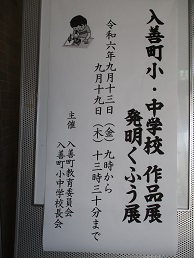 入善町小・中学校 作品展
発明くふう展
令和六年九月十三日（金）九時から
九月十九日（木）十三時三十分まで
主催
入善町教育委員会
入善町小中学校長会